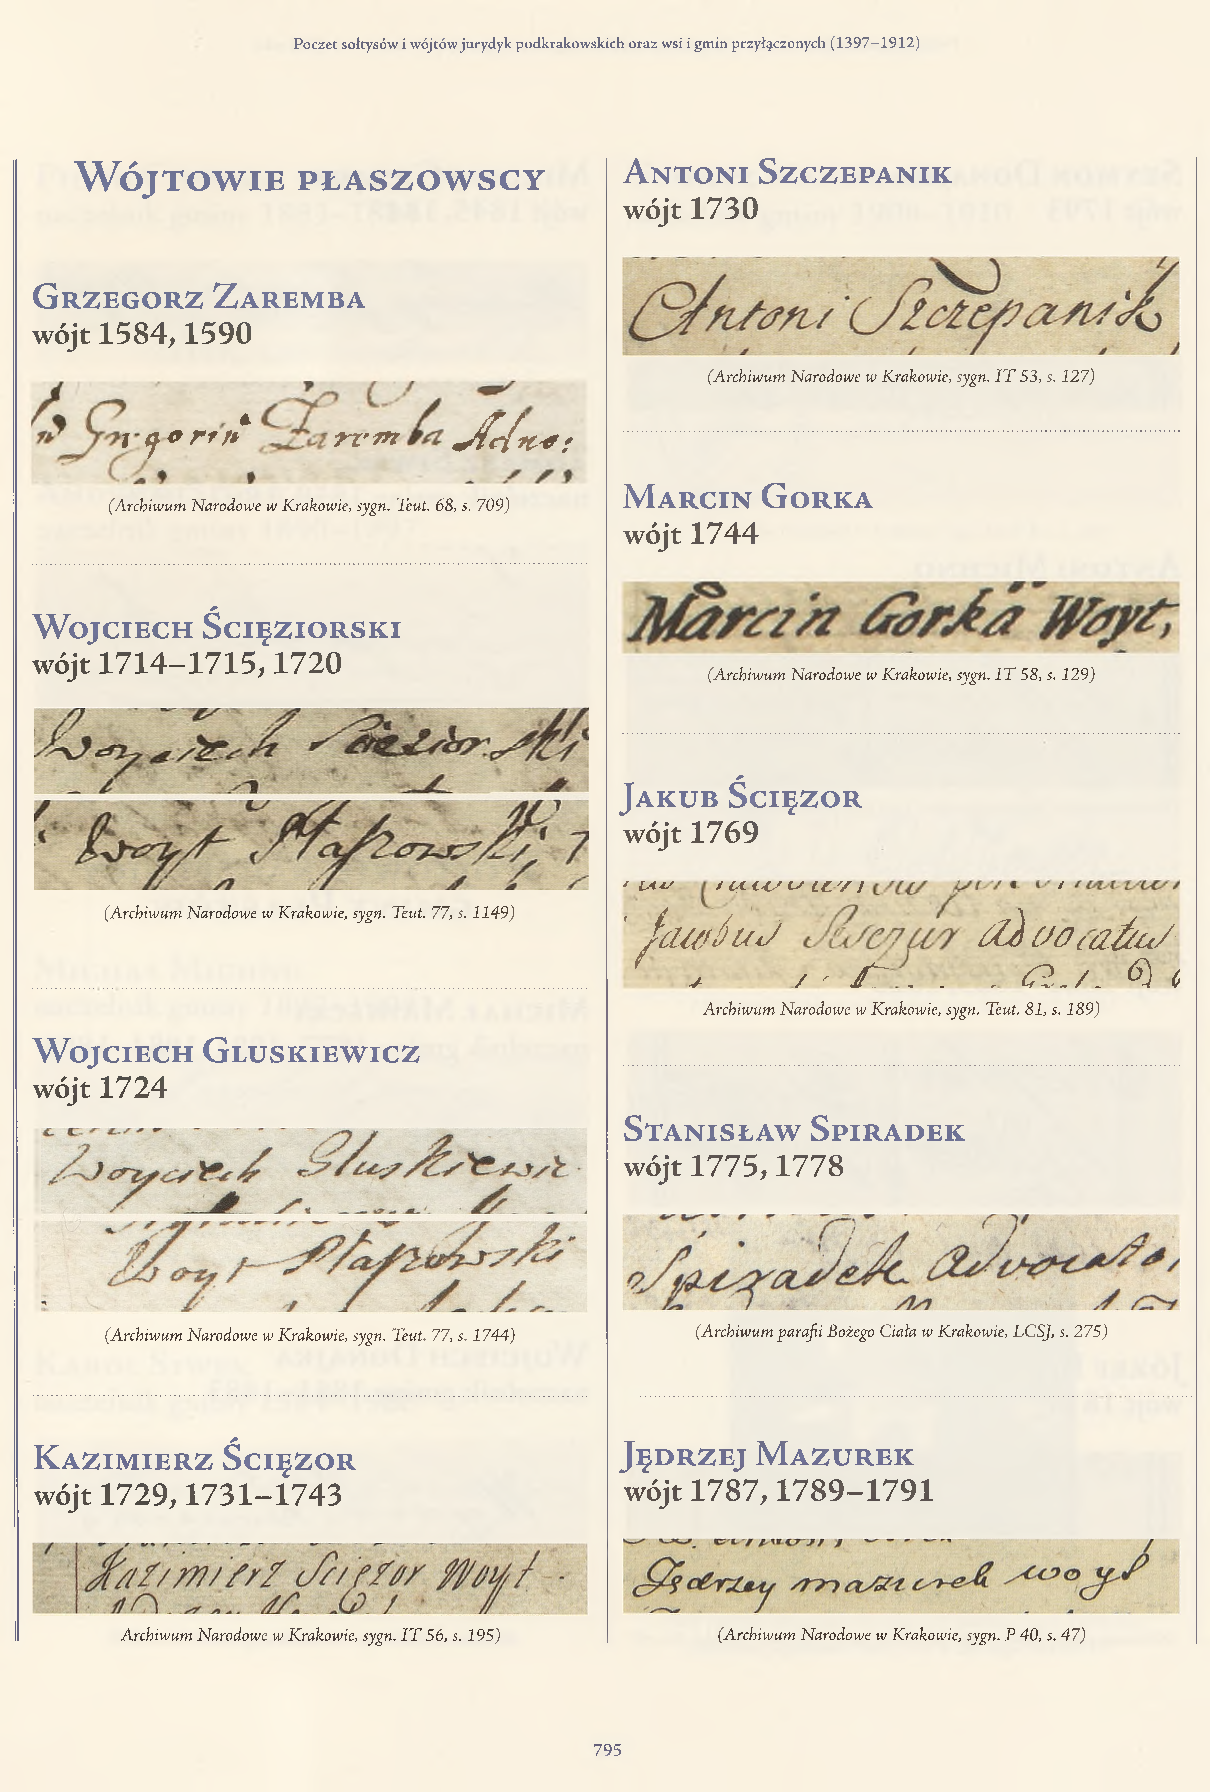 Poczet sołtysów i wójtów jurydyk podkrakowskich oraz wsi i gmin przyłączonych (1397–1912)
Wójtowie płaszowscy
Grzegorz Zaremba
wójt 1584, 1590
Zaremba
(Archiwum Narodowe w Krakowie, sygn. Teut. 68, s. 709)
Wojciech Ścięziorski
wójt 1714–1715, 1720
Woyciech Scieziorski
Woyt Płaszowski,
(Archiwum Narodowe w Krakowie, sygn. Teut. 77, s. 1149)
Wojciech Gluskiewicz
wójt 1724
Woyciech Gluskiewic
Woyt Płaszowski
(Archiwum Narodowe w Krakowie, sygn. Teut. 77, s. 1744)
Kazimierz Ścięzor
wójt 1729, 1731–1743
Kazimierz Scięzor Woyt
Archiwum Narodowe w Krakowie, sygn. IT 56, s. 195)
Antoni Szczepanik
wójt 1730
Antoni Szczepanik
(Archiwum Narodowe w Krakowie, sygn. IT 53, s. 127)
Marcin Gorka
wójt 1744
Marcin Gorka Woyt,
(Archiwum Narodowe w Krakowie, sygn. IT 58, s. 129)
Jakub Ścięzor
wójt 1769
Jacobus advocatus
Archiwum Narodowe w Krakowie, sygn. Teut. 81, s. 189)
Stanisław Spiradek
wójt 1775, 1778
Spiradek advocato,
(Archiwum parafii Bożego Ciała w Krakowie, LCSJ, s. 275)
Jędrzej Mazurek
wójt 1787, 1789–1791
Jędrzey mazurek woyt
(Archiwum Narodowe w Krakowie, sygn. P 40, s. 47)
795